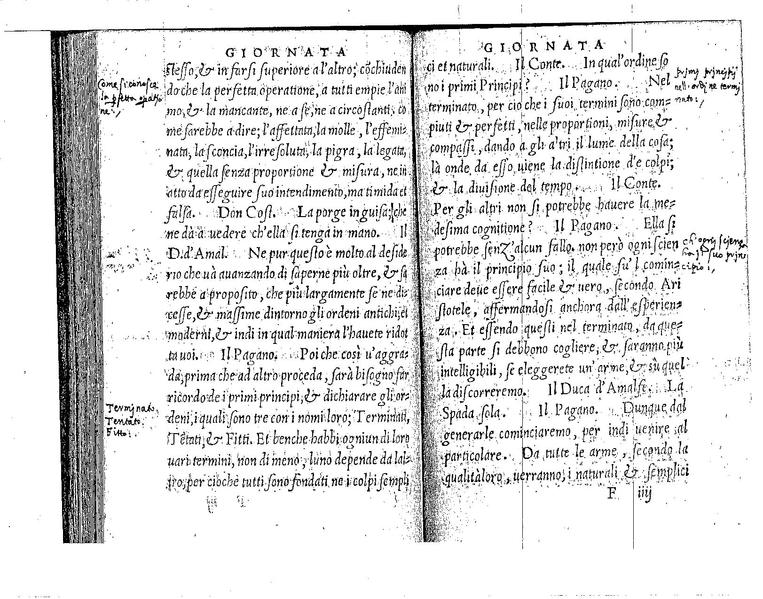 GIORNATA
stesso, & in farsi superiore a l'altro; cōchiuden
do che la perfetta operatione, a tutti empie l'ani
mo, & la mancante, ne a se, ne a circostanti, co
me sarebbe a dire; l'affettata, la molle, l'effemi-
nata, la sconcia, l'irresoluta, la pigra, la legata,
& quella senza proportione & misura, ne in
atto da esseguire suo intendimento, ma timida et
falsa. Don Cost. La porge in guisa, che
ne dà a vedere ch'ella si tenga in mano. Il
D. d'Amal. Ne pur questo è molto al deside
rio che và avanzando di saperne più oltre, & sa
rebbe a proposito, che più largamente se ne di-
cesse, & massime dintorno gli ordeni antichi, et
moderni, & indi in qual maniera l'havete ridot
ta voi. Il Pagano. Poi che così v'aggra-
da, prima che ad altro proceda, sarà bisogno far
ricordo de i primi principi, & dichiarare gli or-
deni, i quali sono tre con i nomi loro; Terminati,
Tētati, & Fitti. Et benche habbi ogniun di loro
vari termini, non di meno, l'uno depende da l'al-
tro, per cioche tutti sono fondati ne i colpi sempli
Come si conosce
la pfetta opatio
ne
Terminato,
Tentato,
Fitto
GIORNATA
ci et naturali. Il Conte. In qual'ordine so
no i primi Principi? Il Pagano. Nel
terminato, per cio che i suoi termini sono com-
piuti & perfetti, nelle proportioni, misure &
compassi, dando a gli altri il lume della cosa;
là onde da esso viene la distintione d'e colpi,
& la divisione del tempo. Il Conte.
Per gli altri non si potrebbe havere la me-
desima cognitione? Il Pagano. Ella si
potrebbe senZ'alcun fallo, non però ogni scien
za hà il principio suo; il quale su'l comin-
ciare deve essere facile & vero, secondo Ari
stotele, affermandosi anchora dall'esperien-
za. Et essendo questi nel terminato, da que-
sta parte si debbono cogliere, & saranno più
intelligibili, se eleggerete un'arme, & sù quel
la discorreremo. Il Duca d'Amalfe. La
Spada sola. Il Pagano. Dunque dal
generarle cominciaremo, per indi venire al
particolare. Da tutte le arme, secondo la
qualità loro, verranno, i naturali & semplici
F iiij
primi principij
nell ordine termi
nato
ch'ogni scienza
ha il suo prin
cipio